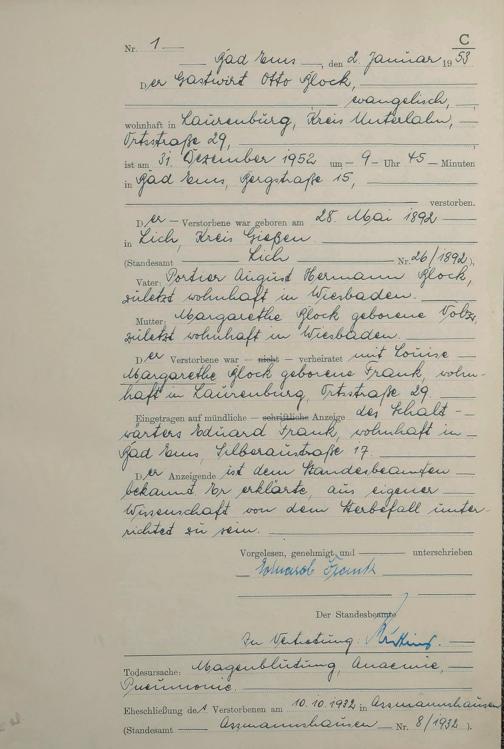 C
Nr. 1
Bad Ems, den 2. Januar 1953
Der Gastwirt Otto Glock,
evangelisch,
wohnhaft in Laurenburg, Kreis Unterlahn,
Ortsstraße 29,
ist am 31. Dezember 1952 um 9 Uhr 45 Minuten
in Bad Ems, Bergstraße 15,
verstorben.
Der Verstorbene war geboren am 28. Mai 1892
in Lich, Kreis Gießen
(Standesamt Lich Nr. 26/1892).
Vater: Portier August Hermann Glock,
zuletzt wohnhaft in Wiesbaden.
Mutter: Margarethe Glock geborene Volz,
zuletzt wohnhaft in Wiesbaden.
Der Verstorbene war — nicht — verheiratet mit Louise
Margarethe Glock geborene Frank, wohn-
haft in Laurenburg, Ortsstraße 29
Eingetragen auf mündliche — schriftliche Anzeige des Schalt-
wärters Eduard Frank, wohnhaft in
Bad Ems, Silberaustraße 17.
Der Anzeigende ist dem Standesbeamten
bekannt. Er erklärte, aus eigener
Wissenschaft von dem Sterbefall unter-
richtet zu sein.
Vorgelesen, genehmigt und unterschrieben
Eduard Frank
Der Standesbeamte
In Vertretung:
Todesursache: Magenblutung, Anaemie,
Pneumonie.
Eheschließung des Verstorbenen am 10.10.1932 in Assmannshausen
(Standesamt Assmannshausen Nr. 8/1932).